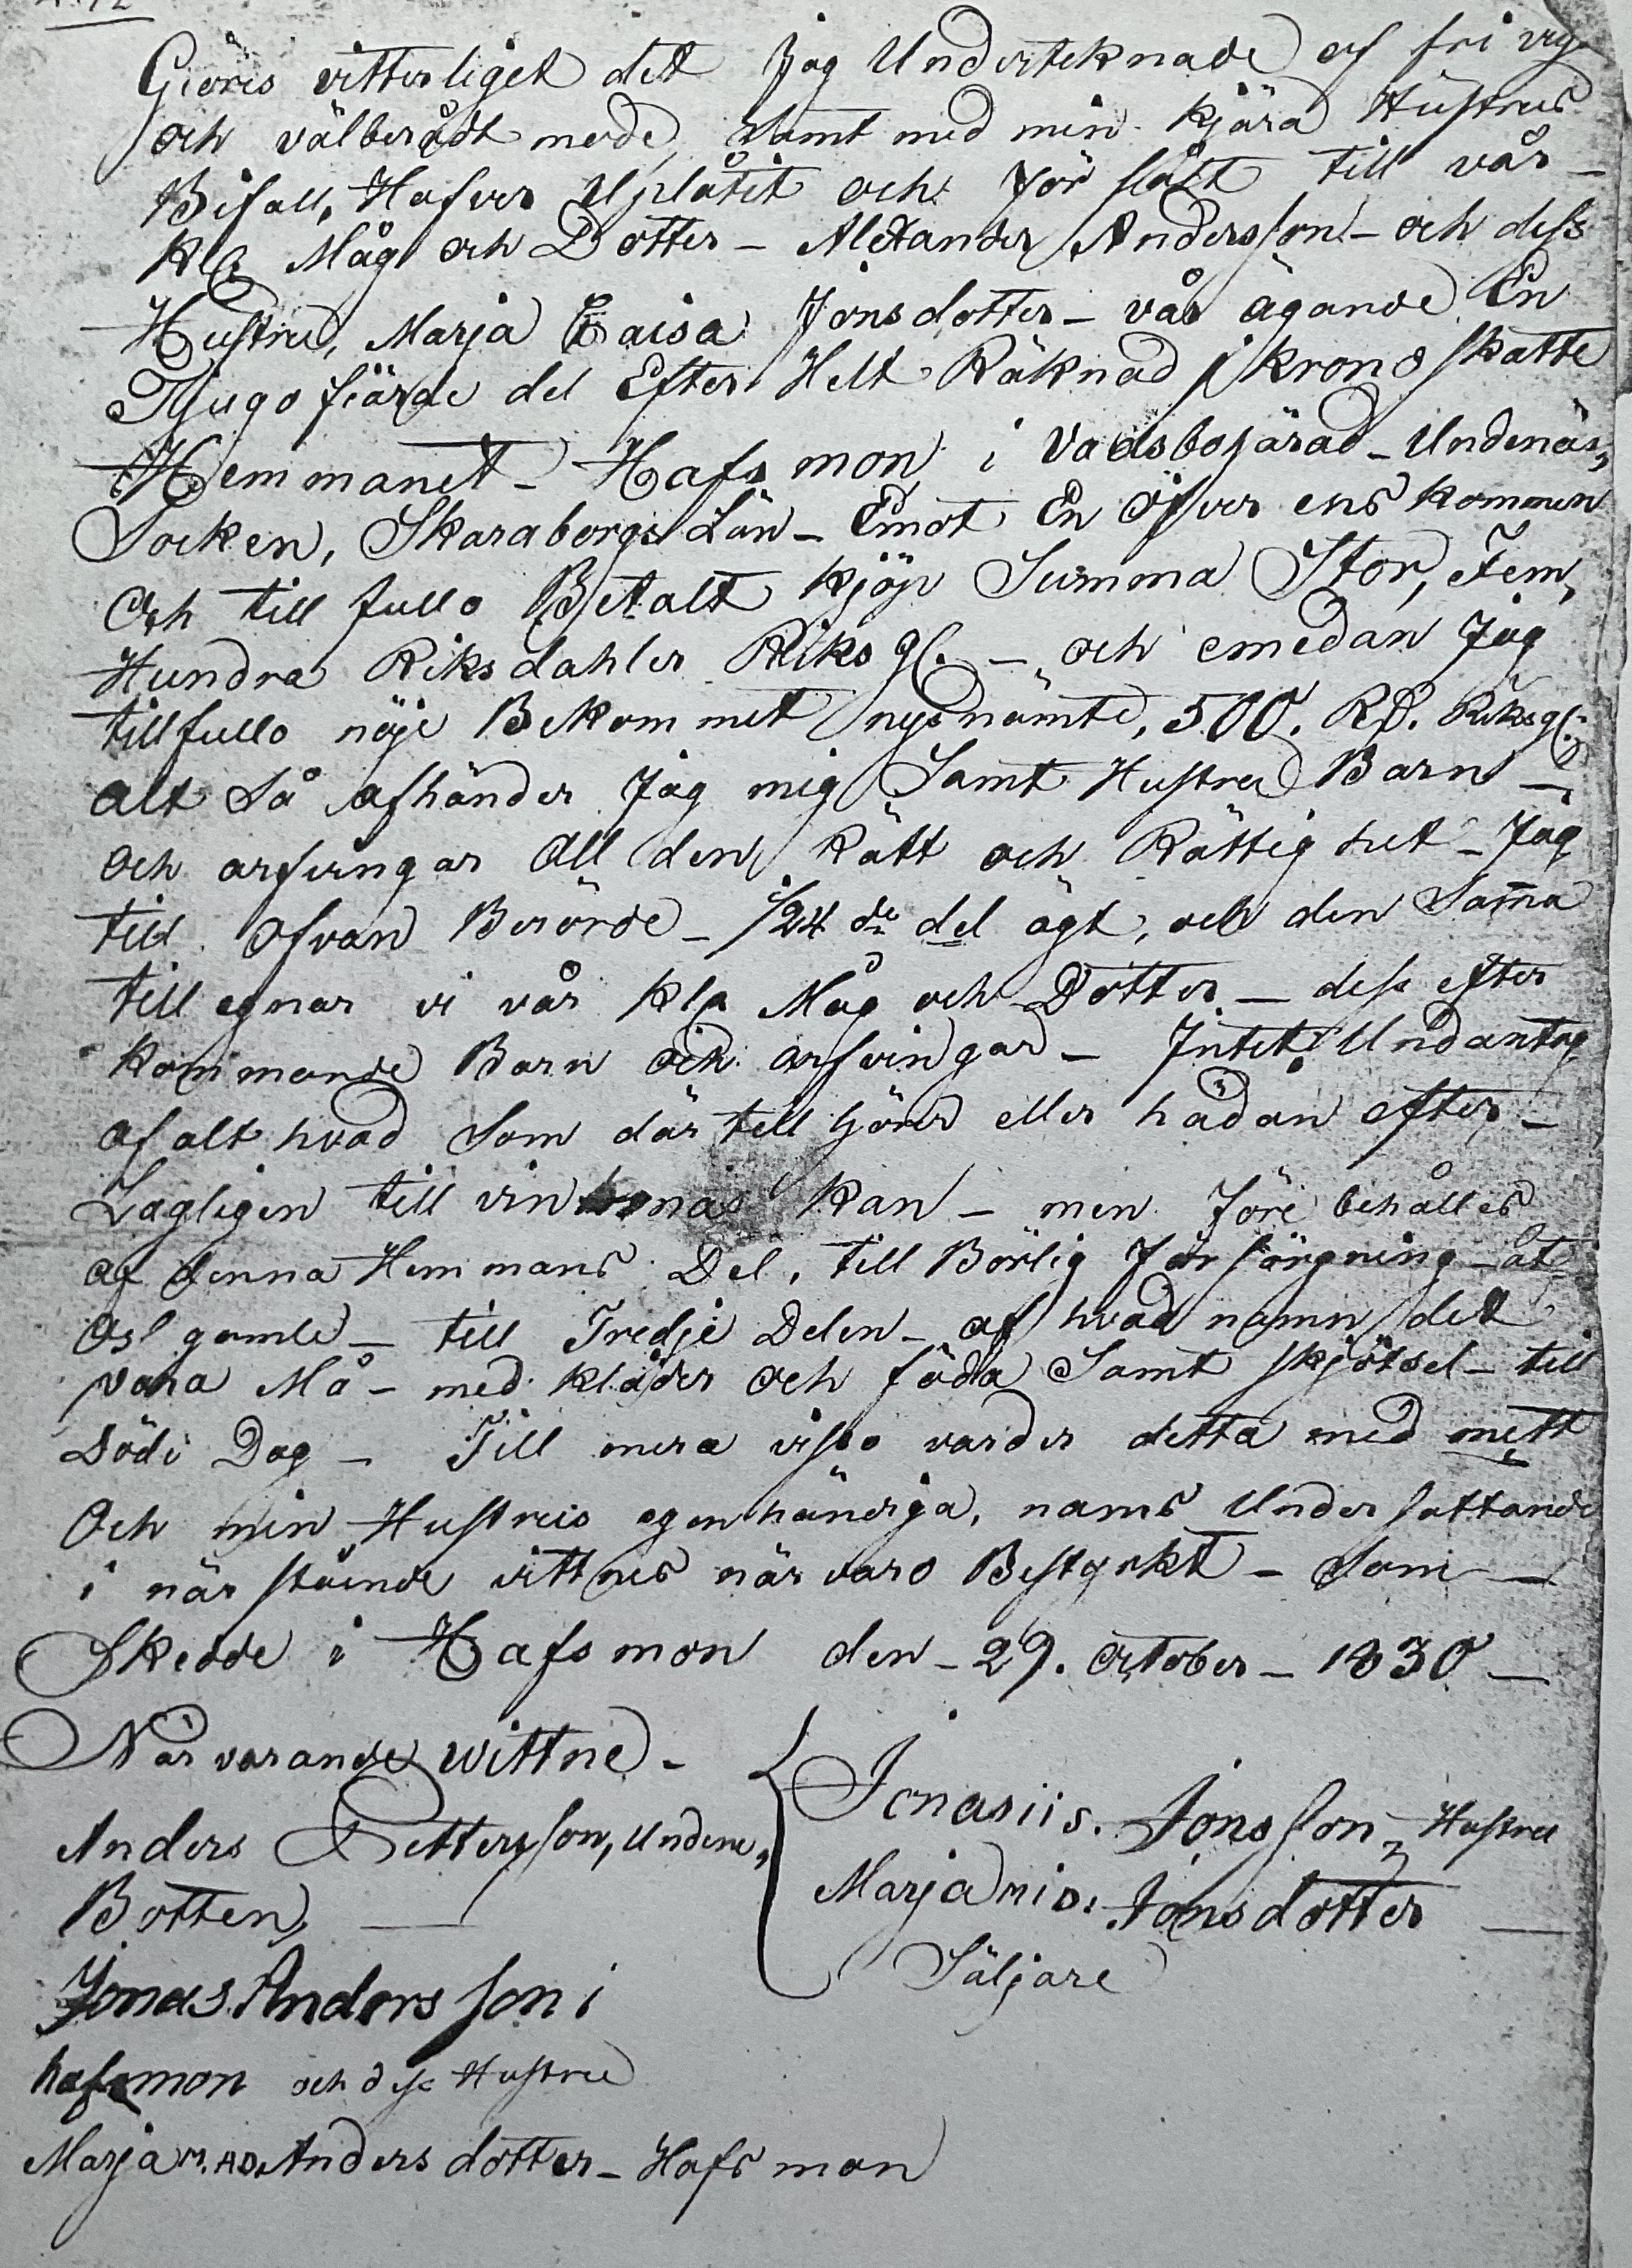 Giöres vitterliget det Jag Underteknade af fri vija
och välberådt mode, Samt med min kjära Hustrus
Bifall, Hafver Uplåtit och För sålt till vår –
Kla Måg och Dotter – Alexander Andersson – och dess
Hustru, Marja Caisa Jonsdotter – vår ägande En
Tjugo fiärde del Efter Helt Räknad i krono skatte
Hemmanet – Hafs mon i Vadsbohärad – Undenäs,,
Socken, Skaraborgs Län – Emot En öfver ens kommen
Och till fullo Betalt kjöp Summa Stor, Fem,
Hundra Riksdahler Riksgl. – och emedan Jag
tillfullo nöje Bekommet nysnämte, 500. RD. Riksgl:
alt Så afhänder Jag mig Samt Hustru Barn –
och arfvingar All den Rätt och Rättighet – Jag
till Ofvan Berörde – 1/24 de del ägt, och den Samma
till egnar vi vår kla Måg och Dotter – dess efter
kommande Barn och arfvingar – Intet Undantag
af alt hvad Som där till hörer eller hädan efter –
Lagligen till vinnas kan – men Före behålles
af denna Hemmans Del, till Börlig För sörgning – åt
Oss gamle – till Tredje Delen – af hvad namn det
vara Må – med kläder och föda Samt skjötsel – till
Dödi Dag – Till mera visso varder detta med mitt
Och min Hustrus egenhändiga, namns Under sattande
i när stående vittnes när varo Bestyrkt – Som –
Skedde i Hafs mon den – 29. October – 1830 –
När varande wittne –
Anders Pettersson, Undene,,
Botten,
Jonas Andersson i
hafsmon och dess Hustru
Marja M. AD. Anders dotter – Hafs mon
Jonas iis. Jonsson, Hustru
Marja MID. Jonsdotter
Säljare